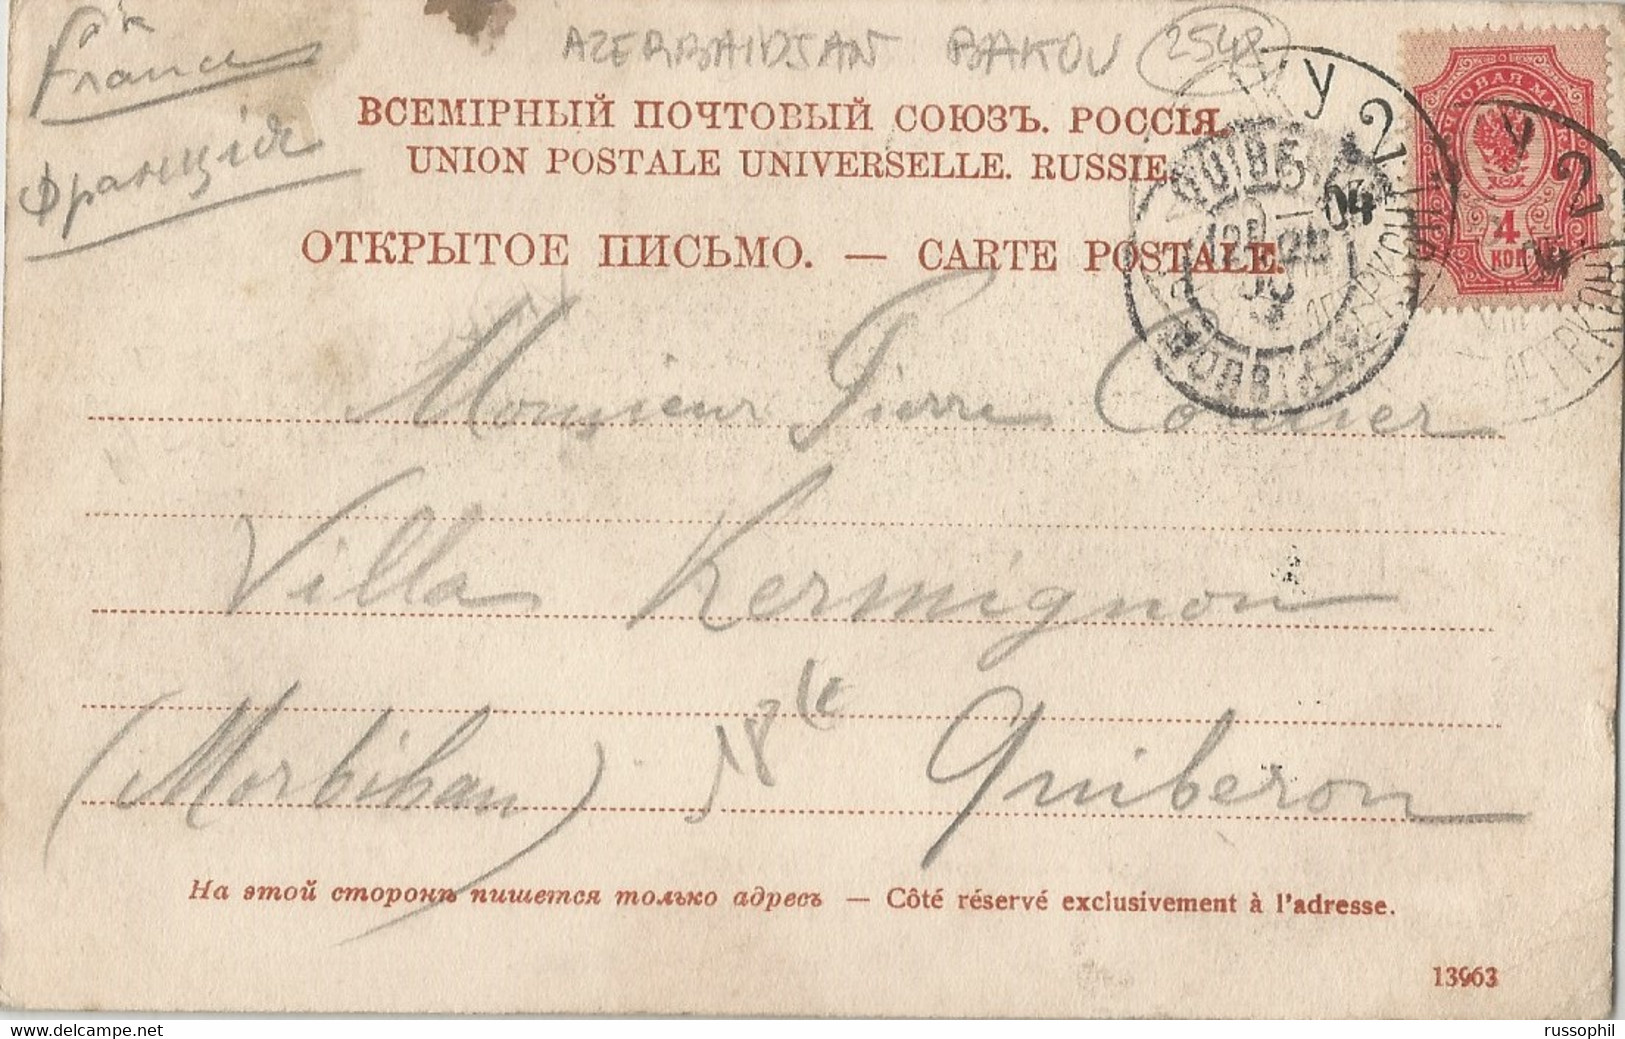 France
AZERBAIDJAN BAKOU 2548
Франція
ВСЕМІРНЫЙ ПОЧТОВЫЙ СОЮЗЪ. РОССІЯ.
UNION POSTALE UNIVERSELLE. RUSSIE.
ОТКРЫТОЕ ПИСЬМО. — CARTE POSTALE.
4
КОП
QUIBERON
MORBIHAN
Monsieur Pierre
Villa Kermignon
(Morbihan) Quiberon
На этой сторонѣ пишется только адресъ — Côté réservé exclusivement à l'adresse.
13963
russophil